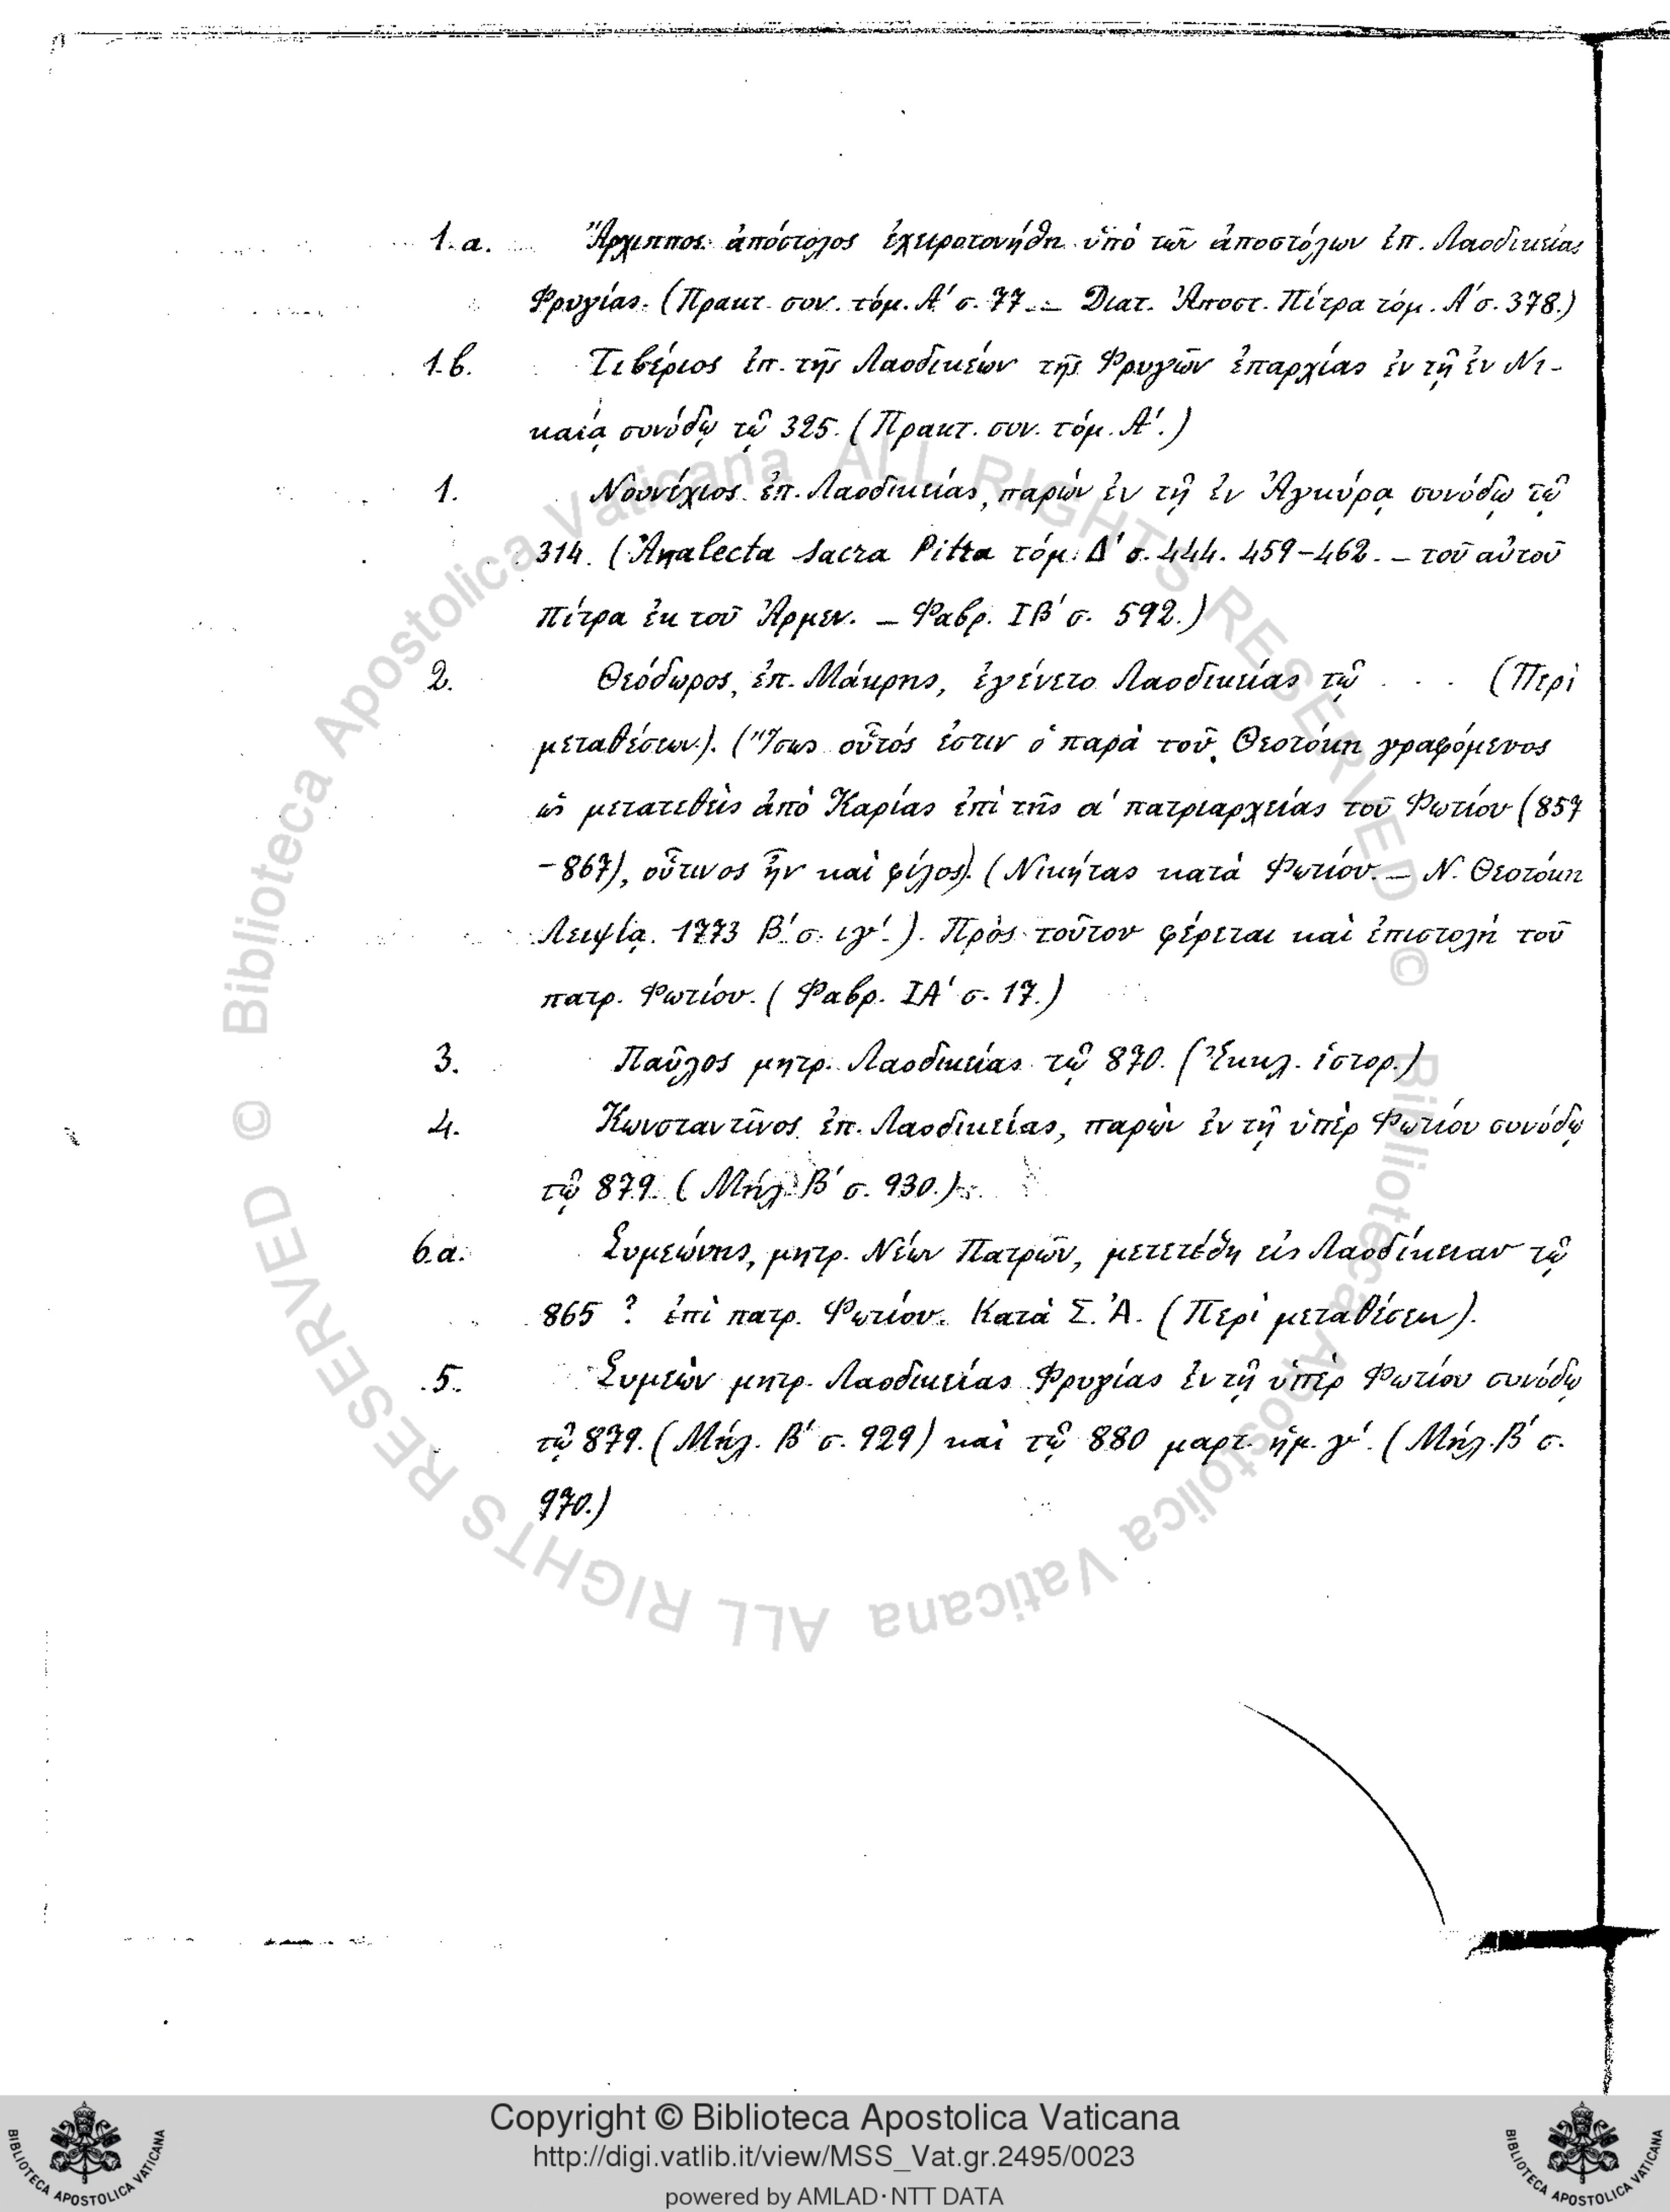 1.a. Ἄρχιππος ἀπόστολος ἐχειροτονήθη ὑπὸ τῶν ἀποστόλων ἐπ. Λαοδικείας
Φρυγίας. (Πρακτ. συν. τόμ. Α' σ. 77. — Διατ. Ἀποστ. Πίτρα τόμ. Α' σ. 378.)
1.b. Τιβέριος ἐπ. τῆς Λαοδικέων τῆς Φρυγῶν ἐπαρχίας ἐν τῇ ἐν Νι-
καίᾳ συνόδῳ τῷ 325. (Πρακτ. συν. τόμ. Α'.)
1. Νουνέχιος ἐπ. Λαοδικείας, παρὼν ἐν τῇ ἐν Ἀγκύρᾳ συνόδῳ τῷ
314. (Analecta Sacra Pitra τόμ. Δ' σ. 444. 459-462. — τοῦ αὐτοῦ
Πίτρα ἐκ τοῦ Ἀρμεν. — Φαβρ. ΙΒ' σ. 592.)
2. Θεόδωρος, ἐπ. Μάκρης, ἐγένετο Λαοδικείας τῷ . . . (Περὶ
μεταθέσεων). (Ἴσως οὗτός ἐστιν ὁ παρὰ τοῦ Θεοτόκη γραφόμενος
ὡς μετατεθεὶς ἀπὸ Καρίας ἐπὶ τῆς α' πατριαρχείας τοῦ Φωτίου (857
-867), οὗτινος ἦν καὶ φίλος). (Νικήτας κατὰ Φωτίου. — Ν. Θεοτόκη
Λειψίᾳ. 1773 Β' σ. ιγ'.). Πρὸς τοῦτον φέρεται καὶ ἐπιστολὴ τοῦ
πατρ. Φωτίου. (Φαβρ. ΙΑ' σ. 17.)
3. Παῦλος μητρ. Λαοδικείας τῷ 870. (Ἐκκλ. ἱστορ.)
4. Κωνσταντῖνος ἐπ. Λαοδικείας, παρὼν ἐν τῇ ὑπὲρ Φωτίου συνόδῳ
τῷ 879. (Μήλ. Β' σ. 930.)
6.a. Συμεώνης, μητρ. Νέων Πατρῶν, μετετέθη εἰς Λαοδίκειαν τῷ
865 ? ἐπὶ πατρ. Φωτίου. Κατὰ Σ. Ἀ. (Περὶ μεταθέσεων).
5. Συμεὼν μητρ. Λαοδικείας Φρυγίας ἐν τῇ ὑπὲρ Φωτίου συνόδῳ
τῷ 879. (Μήλ. Β' σ. 929) καὶ τῷ 880 μαρτ. ἡμ. γ'. (Μήλ. Β' σ.
970.)
© Biblioteca Apostolica Vaticana ALL RIGHTS RESERVED
© Biblioteca Apostolica Vaticana ALL RIGHTS RESERVED
Copyright © Biblioteca Apostolica Vaticana
http://digi.vatlib.it/view/MSS_Vat.gr.2495/0023
powered by AMLAD·NTT DATA
BIBLIOTECA APOSTOLICA VATICANA
BIBLIOTECA APOSTOLICA VATICANA